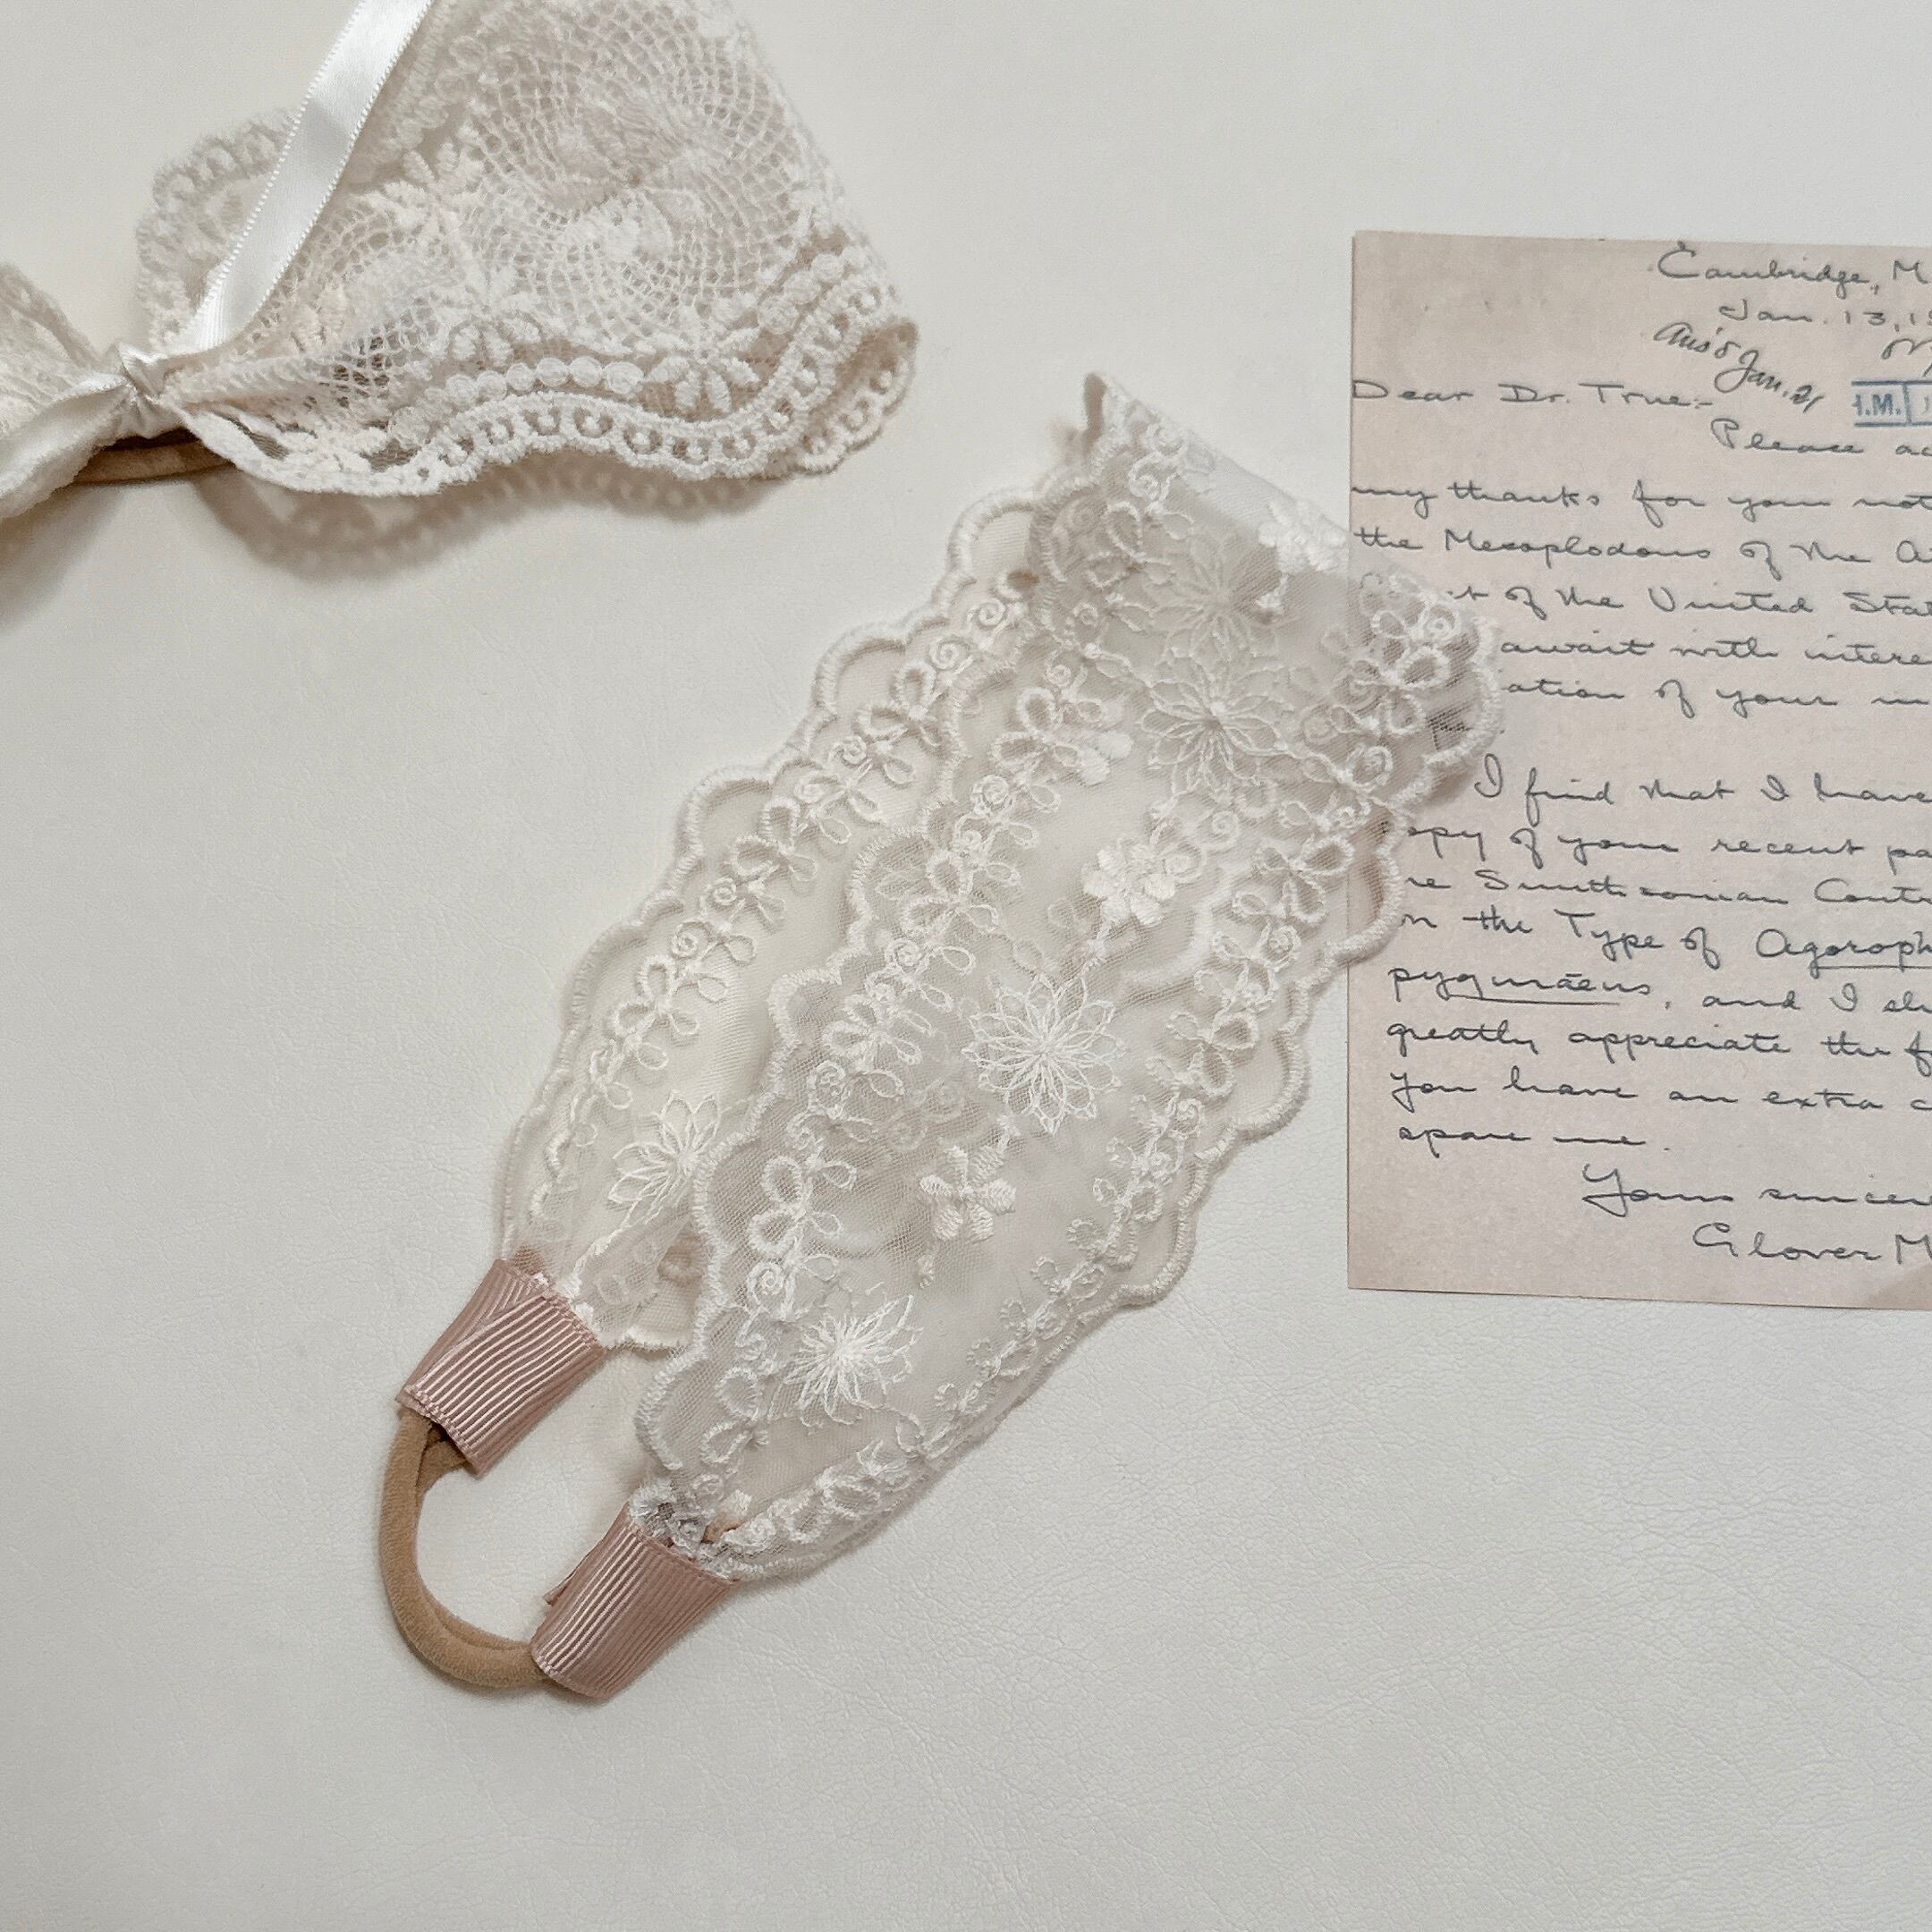 Cambridge, M
Jan. 13, 19
Ans'd Jan. 21
Dear Dr. True:-
I.M.
Please ac
my thanks for your not
the Mesoplodons of the
t of the United Stat
await with intere
ation of your
I find that I have
opy of your recent pa
Smithsonian Cont
on the Type of Agoroph
pygmaeus, and I sh
greatly appreciate the f
you have an extra c
spare me.
Yours sincer
Glover M